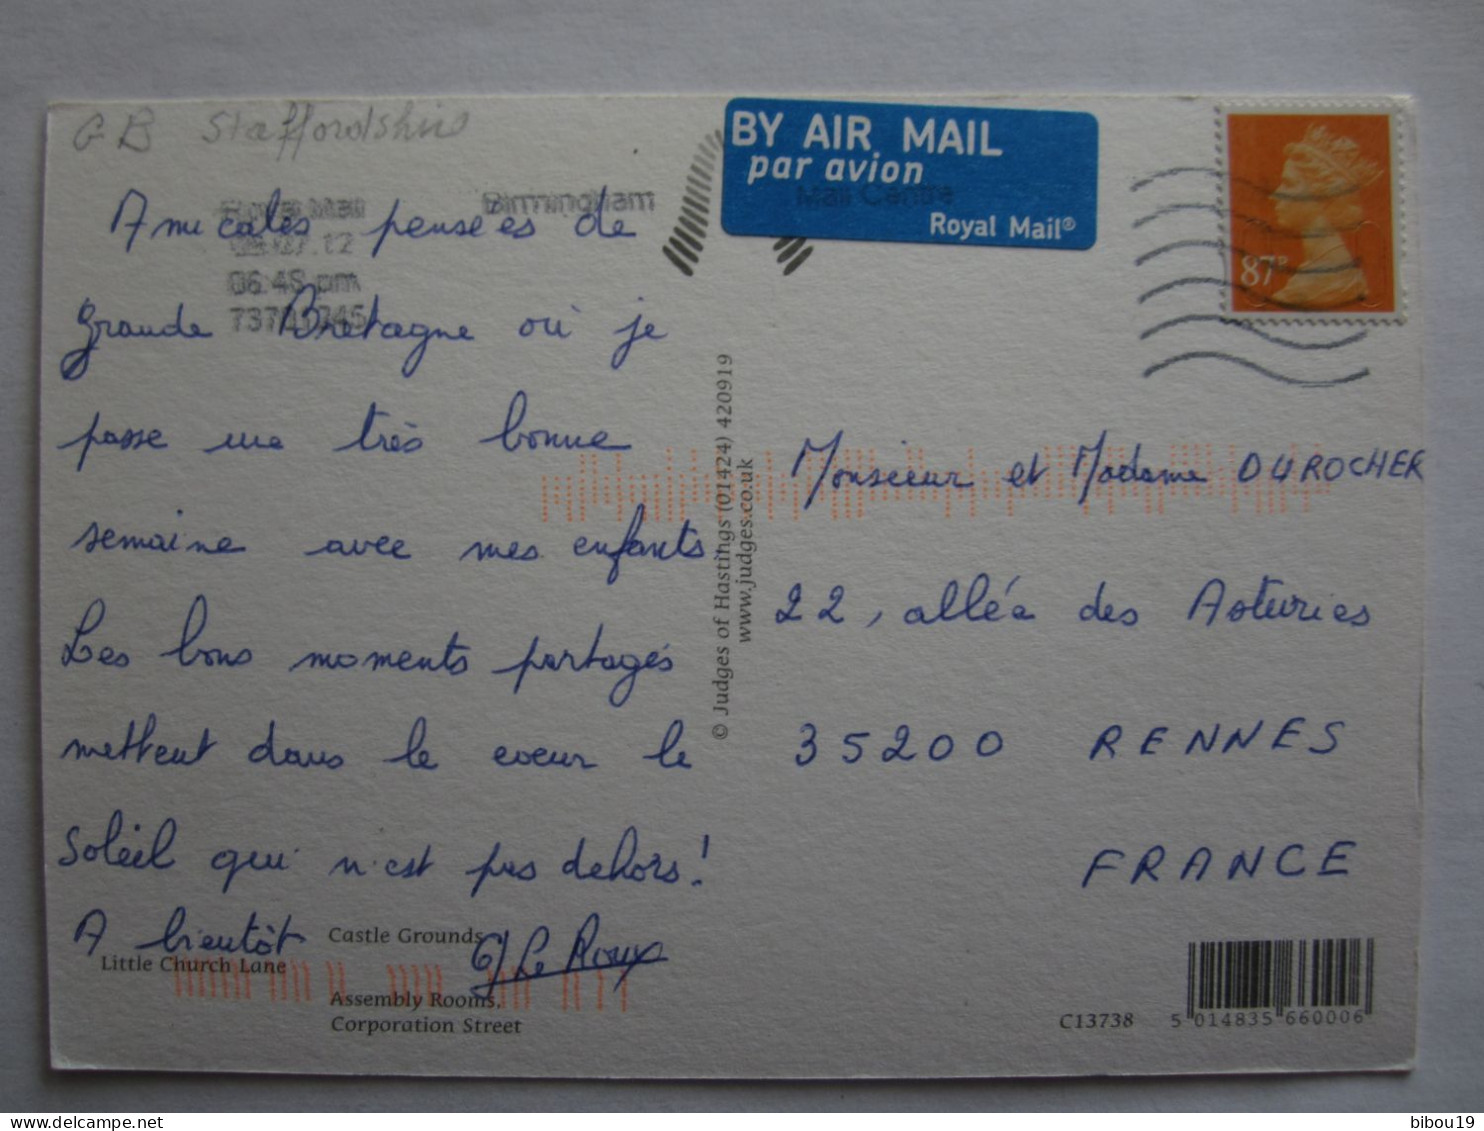 GB Staffordshire
BY AIR MAIL
par avion
Royal Mail®
87P
Royal Mail
Birmingham
Mail Centre
06:48 pm
Amicales pensées de
Grande Bretagne où je
passe une très bonne
semaine avec mes enfants.
Les bons moments partagés
mettent dans le coeur le
soleil qui n'est pas dehors!
A bientôt
G Le Roux
© Judges of Hastings (01424) 420919
www.judges.co.uk
Monsieur et Madame DUROCHER
22, allée des Asturies
35200 RENNES
FRANCE
Castle Grounds
Little Church Lane
Assembly Rooms,
Corporation Street
C13738
5 014835 660006
bibou19